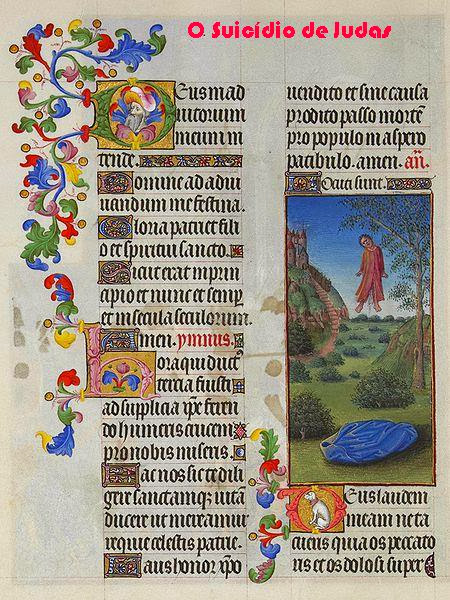 O Suicídio de Judas
Deus in ad
iutorium
meum in
tende.
Domine ad adiu
uandum me festina.
Gloria patri et fili
o et spiritui sancto.
Sicut erat in prin
cipio et nunc et semp
et in secula seculorum.
Amen. ymnus.
Hora qui duct
tercia fuisti
ad supplicia xpe feren
do humeris crucem
pro nobis miseris.
Fac nos sic te dili
gere sanctamq uitā
ducere ut mereamur
requie celestis patrie.
Laus honor xpo
uendito et sine causa
prodito passo mortē
pro populo in aspero
patibulo. amen. añ.
Locuti sunt.
Deus laudem
meam ne ta
cueris quia os peccato
ris et os dolosi super